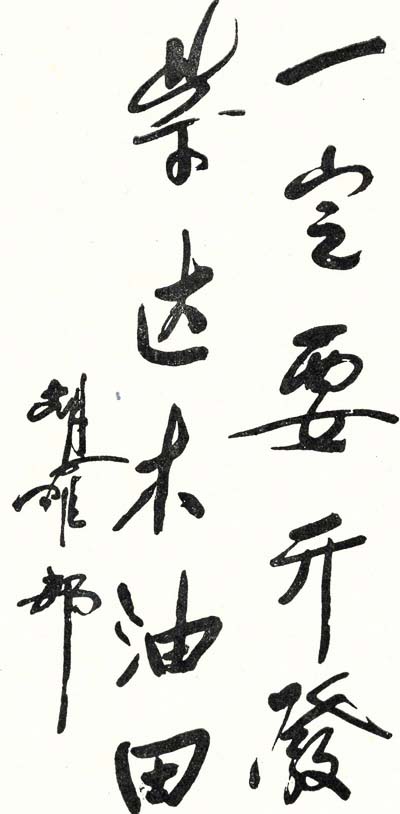 一定要开發
柴达木油田
胡耀邦